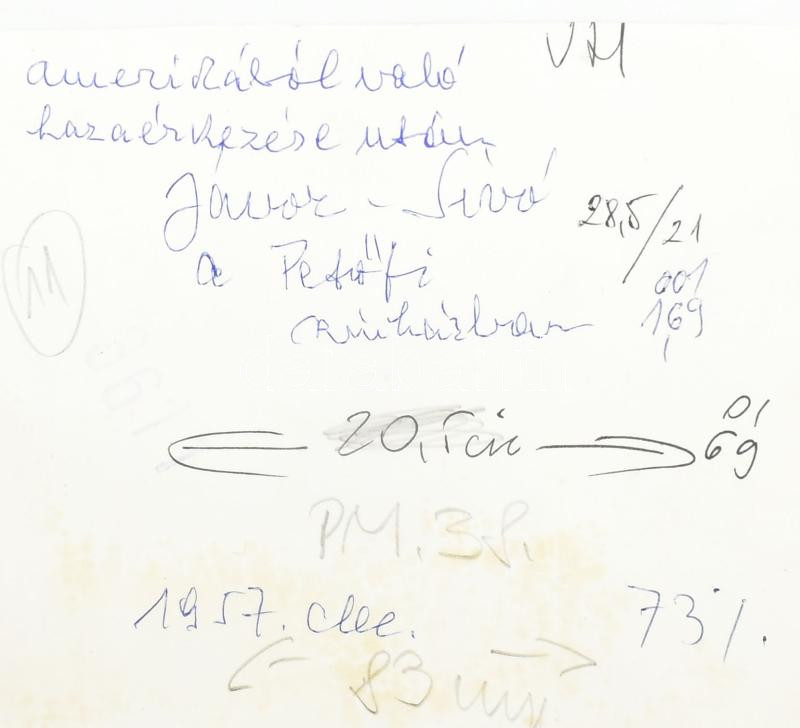 VM
amerikából való
hazaérkezése után
Jávor - Sivó
28,5/21
a Petőfi
001
színházban
169
11
20,5 cic
01
69
PM. 38.
1957. dec.
73%.
83 mm